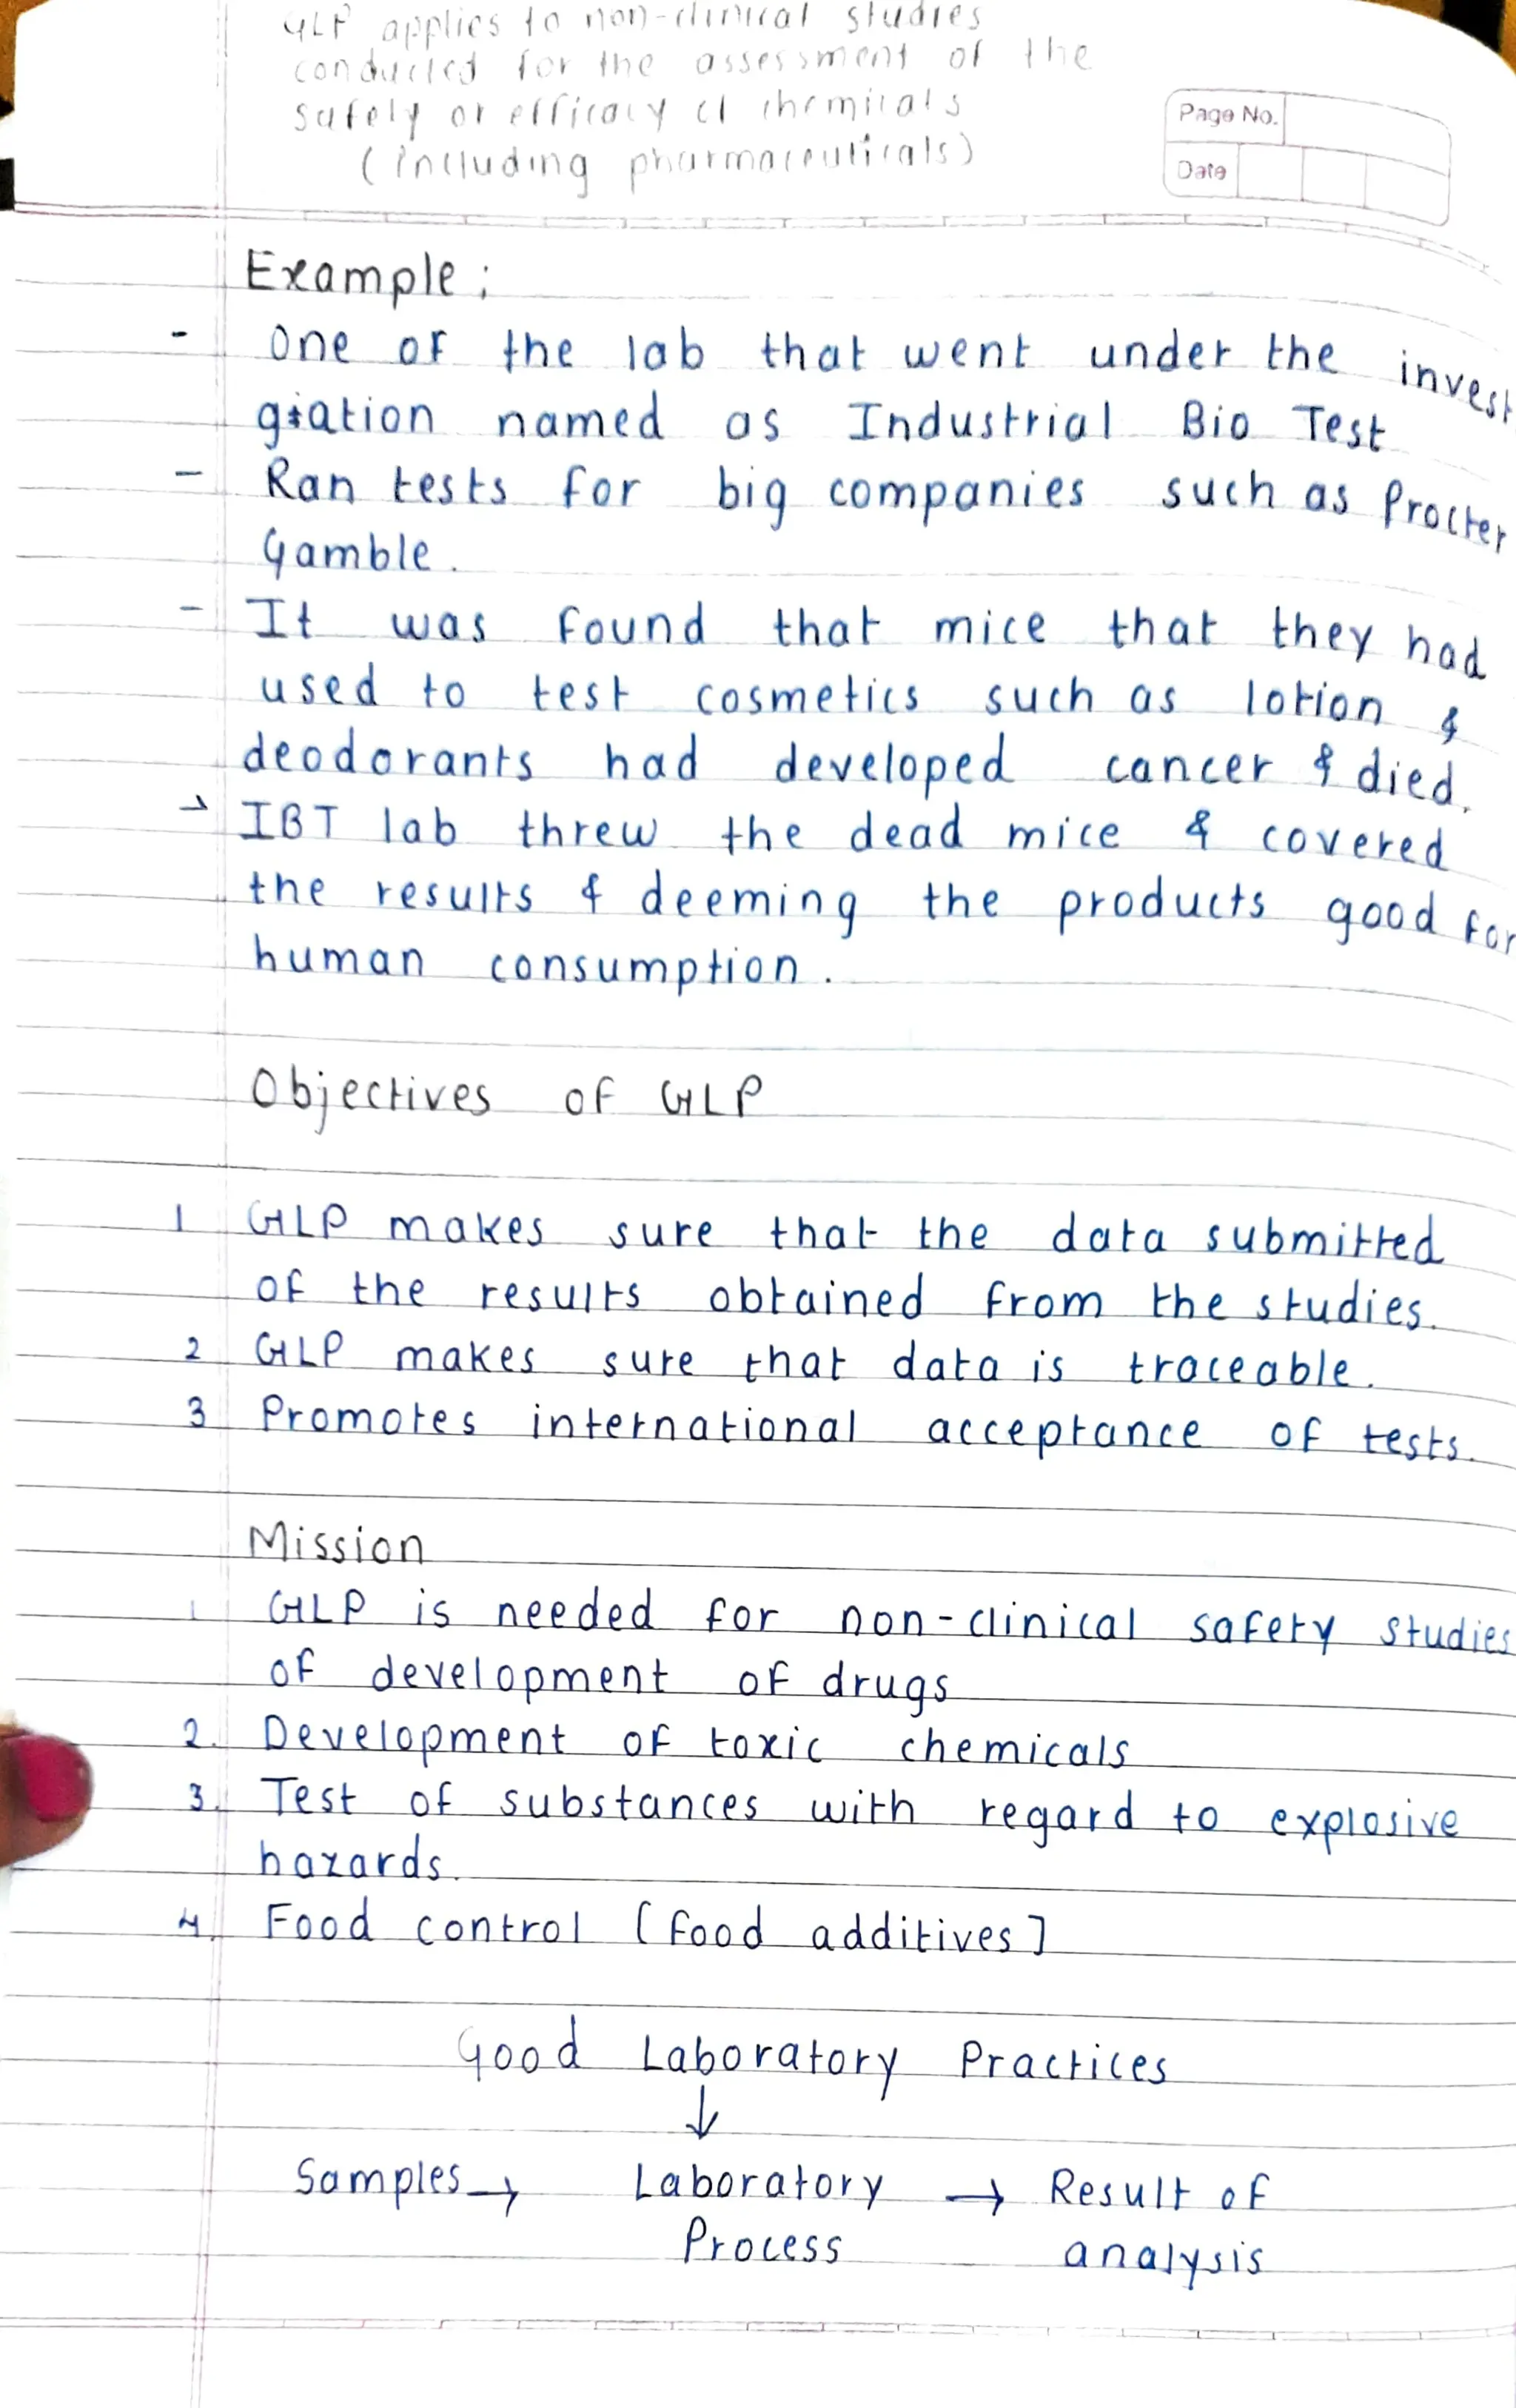 GLP applies to non-clinical studies
conducted for the assessment of the
safely or efficacy of chemicals
(including pharmaceuticals)
Page No.
Date
Example:
- One of the lab that went under the invest
gtation named as Industrial Bio Test
- Ran tests for big companies such as Procter
Gamble.
- It was found that mice that they had
used to test cosmetics such as lotion &
deodorants had developed cancer & died.
→ IBT lab threw the dead mice & covered
the results & deeming the products good for
human consumption.
Objectives of GLP
1 GLP makes sure that the data submitted
of the results obtained from the studies.
2 GLP makes sure that data is traceable.
3 Promotes international acceptance of tests.
Mission
1 GLP is needed for non-clinical safety studies
of development of drugs
2. Development of toxic chemicals
3. Test of substances with regard to explosive
hazards.
4. Food control [food additives]
Good Laboratory Practices
↓
Samples → Laboratory → Result of
Process analysis